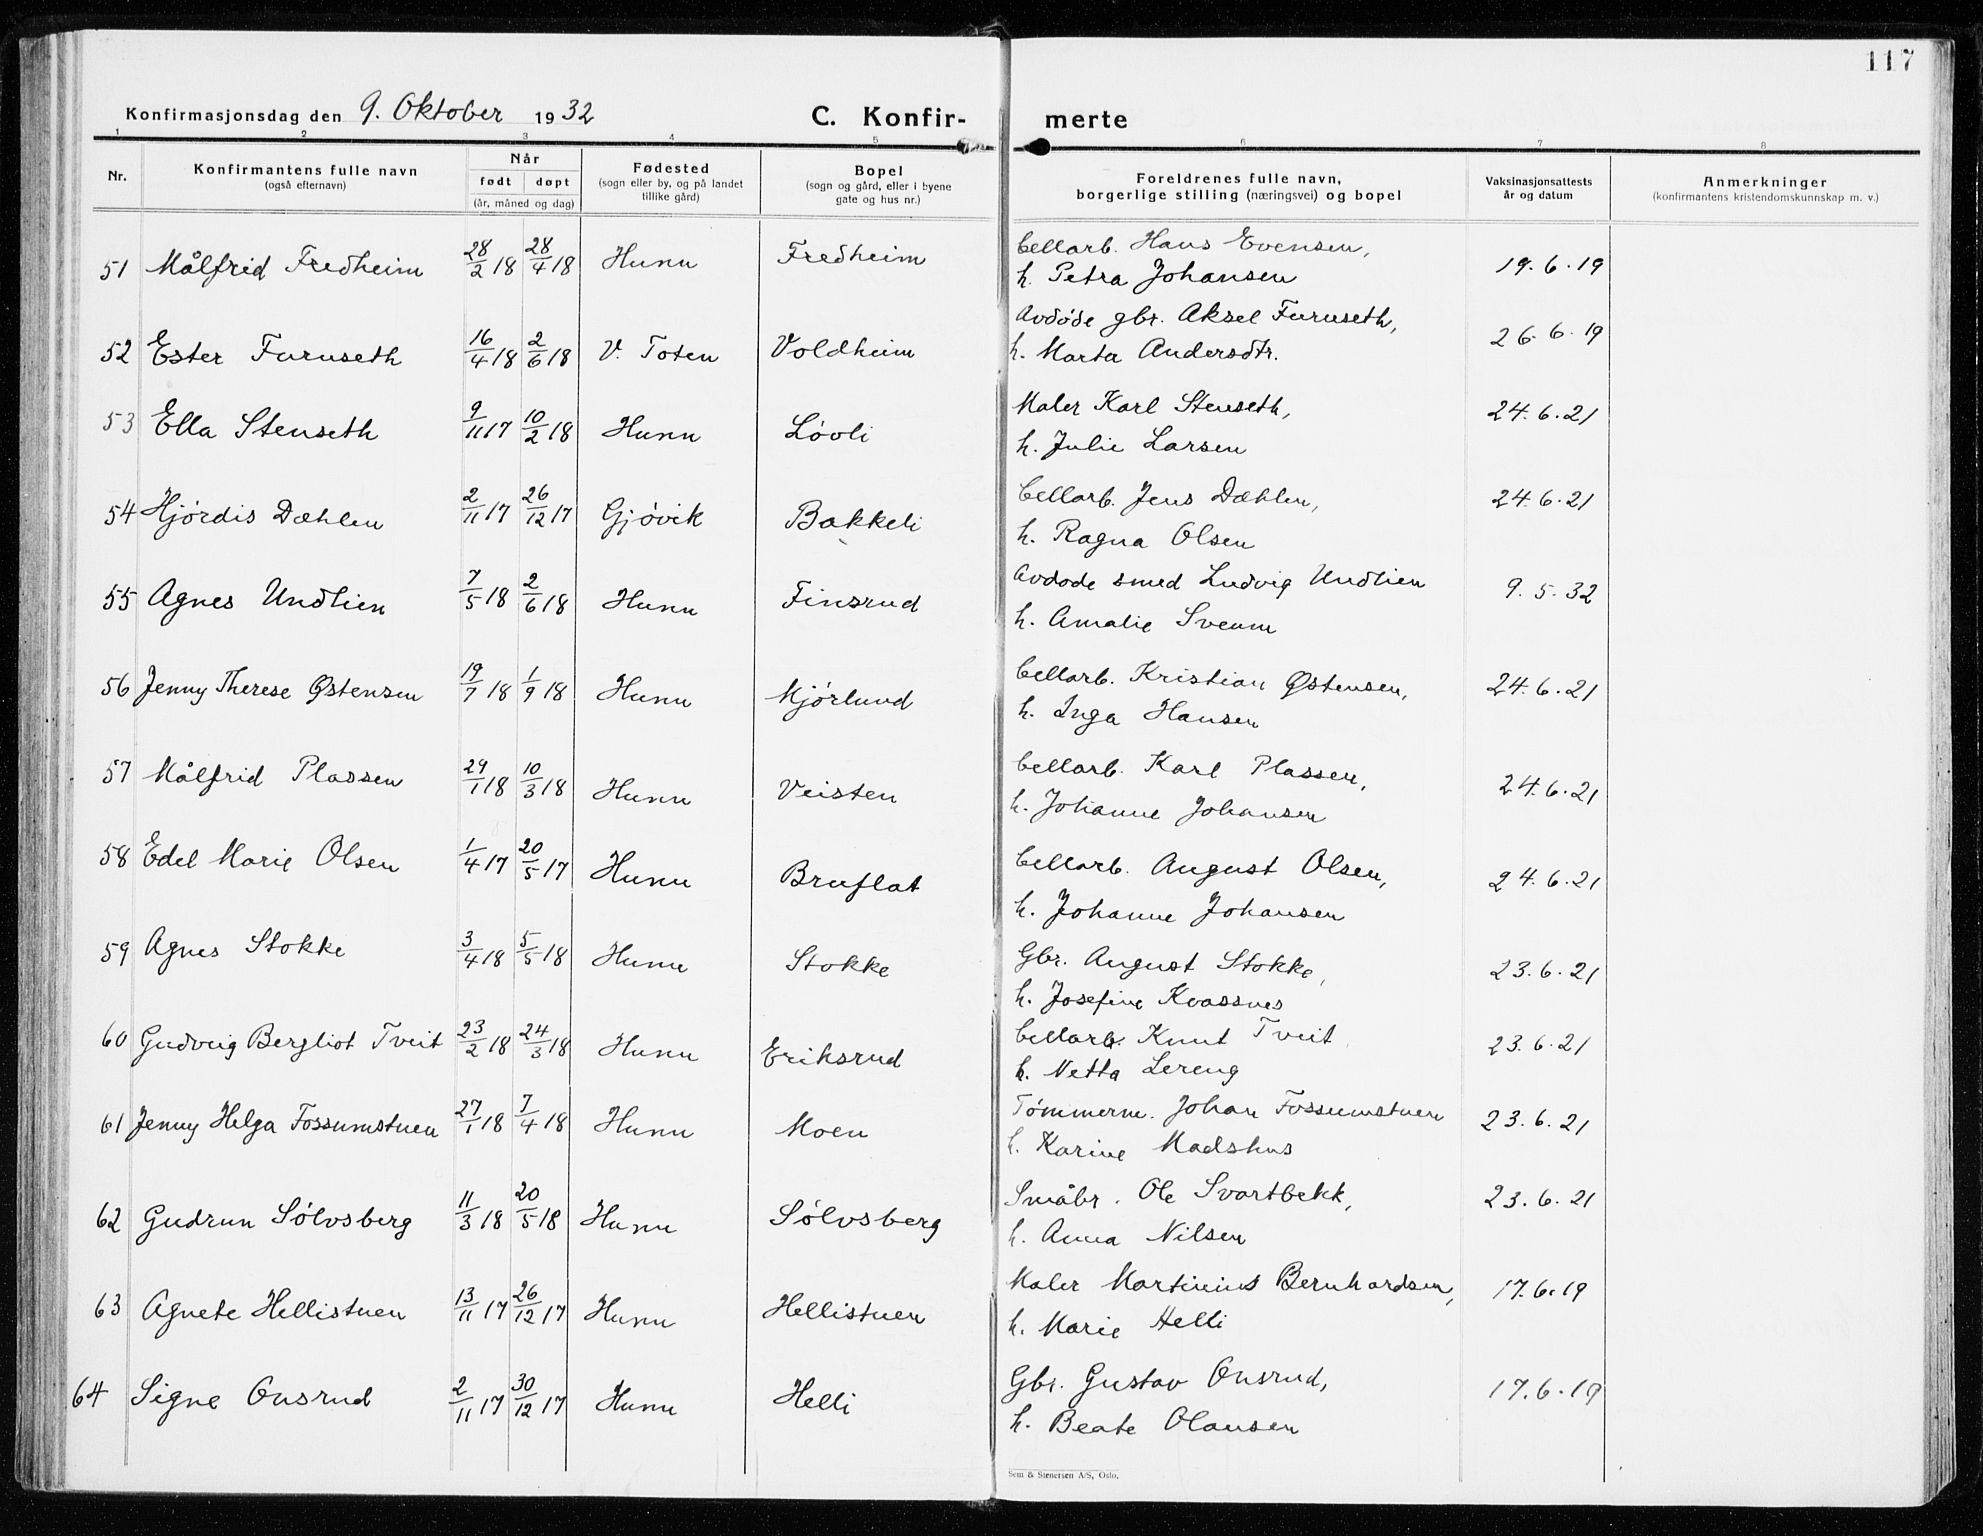 117
Konfirmasjonsdag den 9. Oktober 1932 C. Konfir- merte
1 2 3 4 5 6 7 8
Nr. Konfirmantens fulle navn (også efternavn) Når født døpt (år, måned og dag) Fødested (sogn eller by, og på landet tillike gård) Bopel (sogn og gård, eller i byene gate og hus nr.) Foreldrenes fulle navn, borgerlige stilling (næringsvei) og bopel Vaksinasjonsattests år og datum Anmerkninger (konfirmantens kristendomskunnskap m. v.)
51 Målfrid Fredheim 28/2 18 28/4 18 Hunn Fredheim Cellarb. Hans Evensen, 19.6.19
h. Petra Johansen
52 Ester Furuseth 16/4 18 2/6 18 V. Toten Voldheim Avdøde gbr. Aksel Furuseth, 26.6.19
h. Marta Andersdtr.
53 Ella Stenseth 9/11 17 10/2 18 Hunn Løvli Maler Karl Stenseth, 24.6.21
h. Julie Larsen
54 Hjørdis Dæhlen 2/11 17 26/12 17 Gjøvik Bakkeli Cellarb. Jens Dæhlen, 24.6.21
h. Ragna Olsen
55 Agnes Undlien 7/5 18 2/6 18 Hunn Finsrud Avdøde smed Ludvig Undlien 9.5.32
h. Amalie Sveum
56 Jenny Therese Østensen 19/7 18 1/9 18 Hunn Mjørlund Cellarb. Kristian Østensen, 24.6.21
h. Inga Hansen
57 Målfrid Plassen 29/1 18 10/3 18 Hunn Veisten Cellarb. Karl Plassen, 24.6.21
h. Johanne Johansen
58 Edel Marie Olsen 1/4 17 20/5 17 Hunn Bruflat Cellarb. August Olsen, 24.6.21
h. Johanne Johansen
59 Agnes Stokke 3/4 18 5/5 18 Hunn Stokke Gbr. August Stokke, 23.6.21
h. Josefine Kvassnes
60 Gudveig Bergliot Tveit 23/2 18 24/3 18 Hunn Eriksrud Cellarb. Knut Tveit 23.6.21
h. Netta Lereng
61 Jenny Helga Fossumstuen 27/1 18 7/4 18 Hunn Moen Tømmerm. Johan Fossumstuen 23.6.21
h. Karine Madshus
62 Gudrun Sølvsberg 11/3 18 20/5 18 Hunn Sølvsberg Småbr. Ole Svartbekk, 23.6.21
h. Anna Nilsen
63 Agnete Hellistuen 13/11 17 26/12 17 Hunn Hellistuen Maler Martinius Bernhardsen, 17.6.19
h. Marie Helli
64 Signe Onsrud 2/11 17 30/12 17 Hunn Helli Gbr. Gustav Onsrud, 17.6.19
h. Beate Olausen
Sem & Stenersen A/S, Oslo.